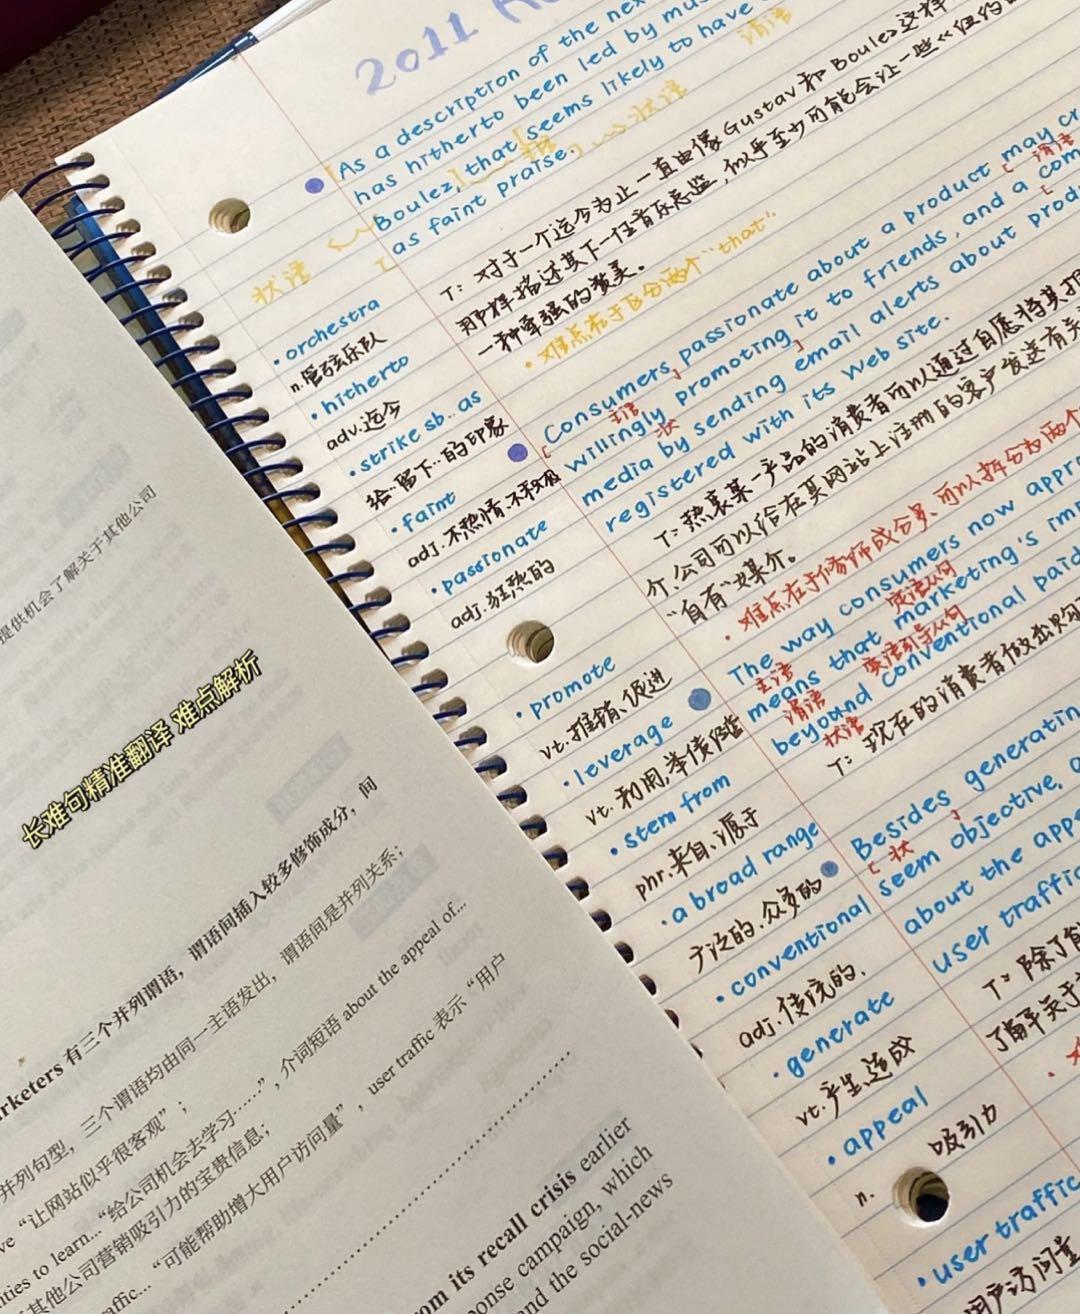 2011
As a description of the nex
has hitherto been led by mus
Boulez, that seems likely to have
as faint praise.
谓语
状语
状语
T: 对于一个迄今为止一直由像Gustav和Boulez这样
那样描述其下一任音乐总监,似乎至少可能会让一些《纽约
一种牵强的赞美。
·难点在于区分两个"that".
Consumers, passionate about a product may cr
willingly promoting it to friends, and a com
media by sending email alerts about prod
registered with its Web site.
谓语
主语
状
T: 热衷某一产品的消费者可以通过自愿将其推
介.公司可以给在其网站上注册的客户发送有关
"自有"媒介。
·难点在于修饰成分多、可以拆分为两个
The way consumers now appro
means that marketing's im
beyound conventional paid
定语从句
主语
宾语引导从句
谓语
状语
T: 现在的消费者做出购
Besides generatin
seem objective,
about the appe
user traffic
状
T: 除了能
了解关于
·orchestra
n.管弦乐队
·hitherto
adv.迄今
·strike sb..as
给..留下..的印象
·faint
adj.不热情.不积极
·passionate
adj.狂热的
·promote
vt.推销、促进
·leverage
vt.利用,举债经营
·stem from
phr.来自、源于
·a broad range
广泛的.众多的
·conventional
adj.传统的.
·generate
vt.产生,造成
·appeal
n. 吸引力
·user traffic
用户访问量
提供机会了解关于其他公司
长难句精准翻译 难点解析
rketers 有三个并列谓语，谓语间插入较多修饰成分，间
并列句型，三个谓语均由同一主语发出，谓语间是并列关系；
ve “让网站似乎很客观”；
ities to learn...“给公司机会去学习……”，介词短语 about the appeal of...
其他公司营销吸引力的宝贵信息；
affic...“可能帮助增大用户访问量”，user traffic 表示“用户
om its recall crisis earlier
ponse campaign, which
nd the social-news